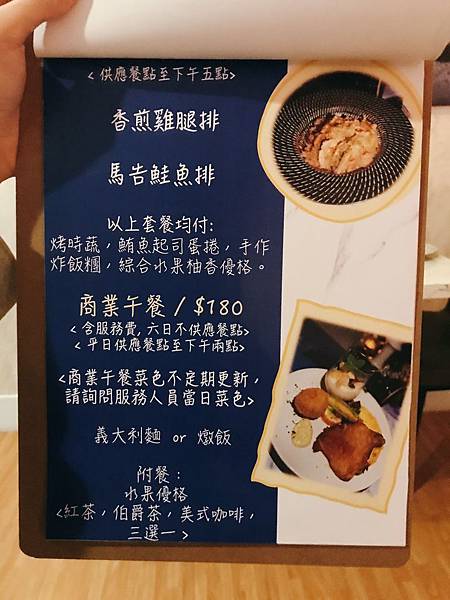 < 供應餐點至下午五點>
香煎雞腿排
馬告鮭魚排
以上套餐均付:
烤時蔬，鮪魚起司蛋捲，手作
炸飯糰，綜合水果柚香優格。
商業午餐 / $180
< 含服務費, 六日不供應餐點>
< 平日供應餐點至下午兩點>
<商業午餐菜色不定期更新，
請詢問服務人員當日菜色>
義大利麵 or 燉飯
附餐：
水果優格
<紅茶，伯爵茶，美式咖啡，
三選一 >